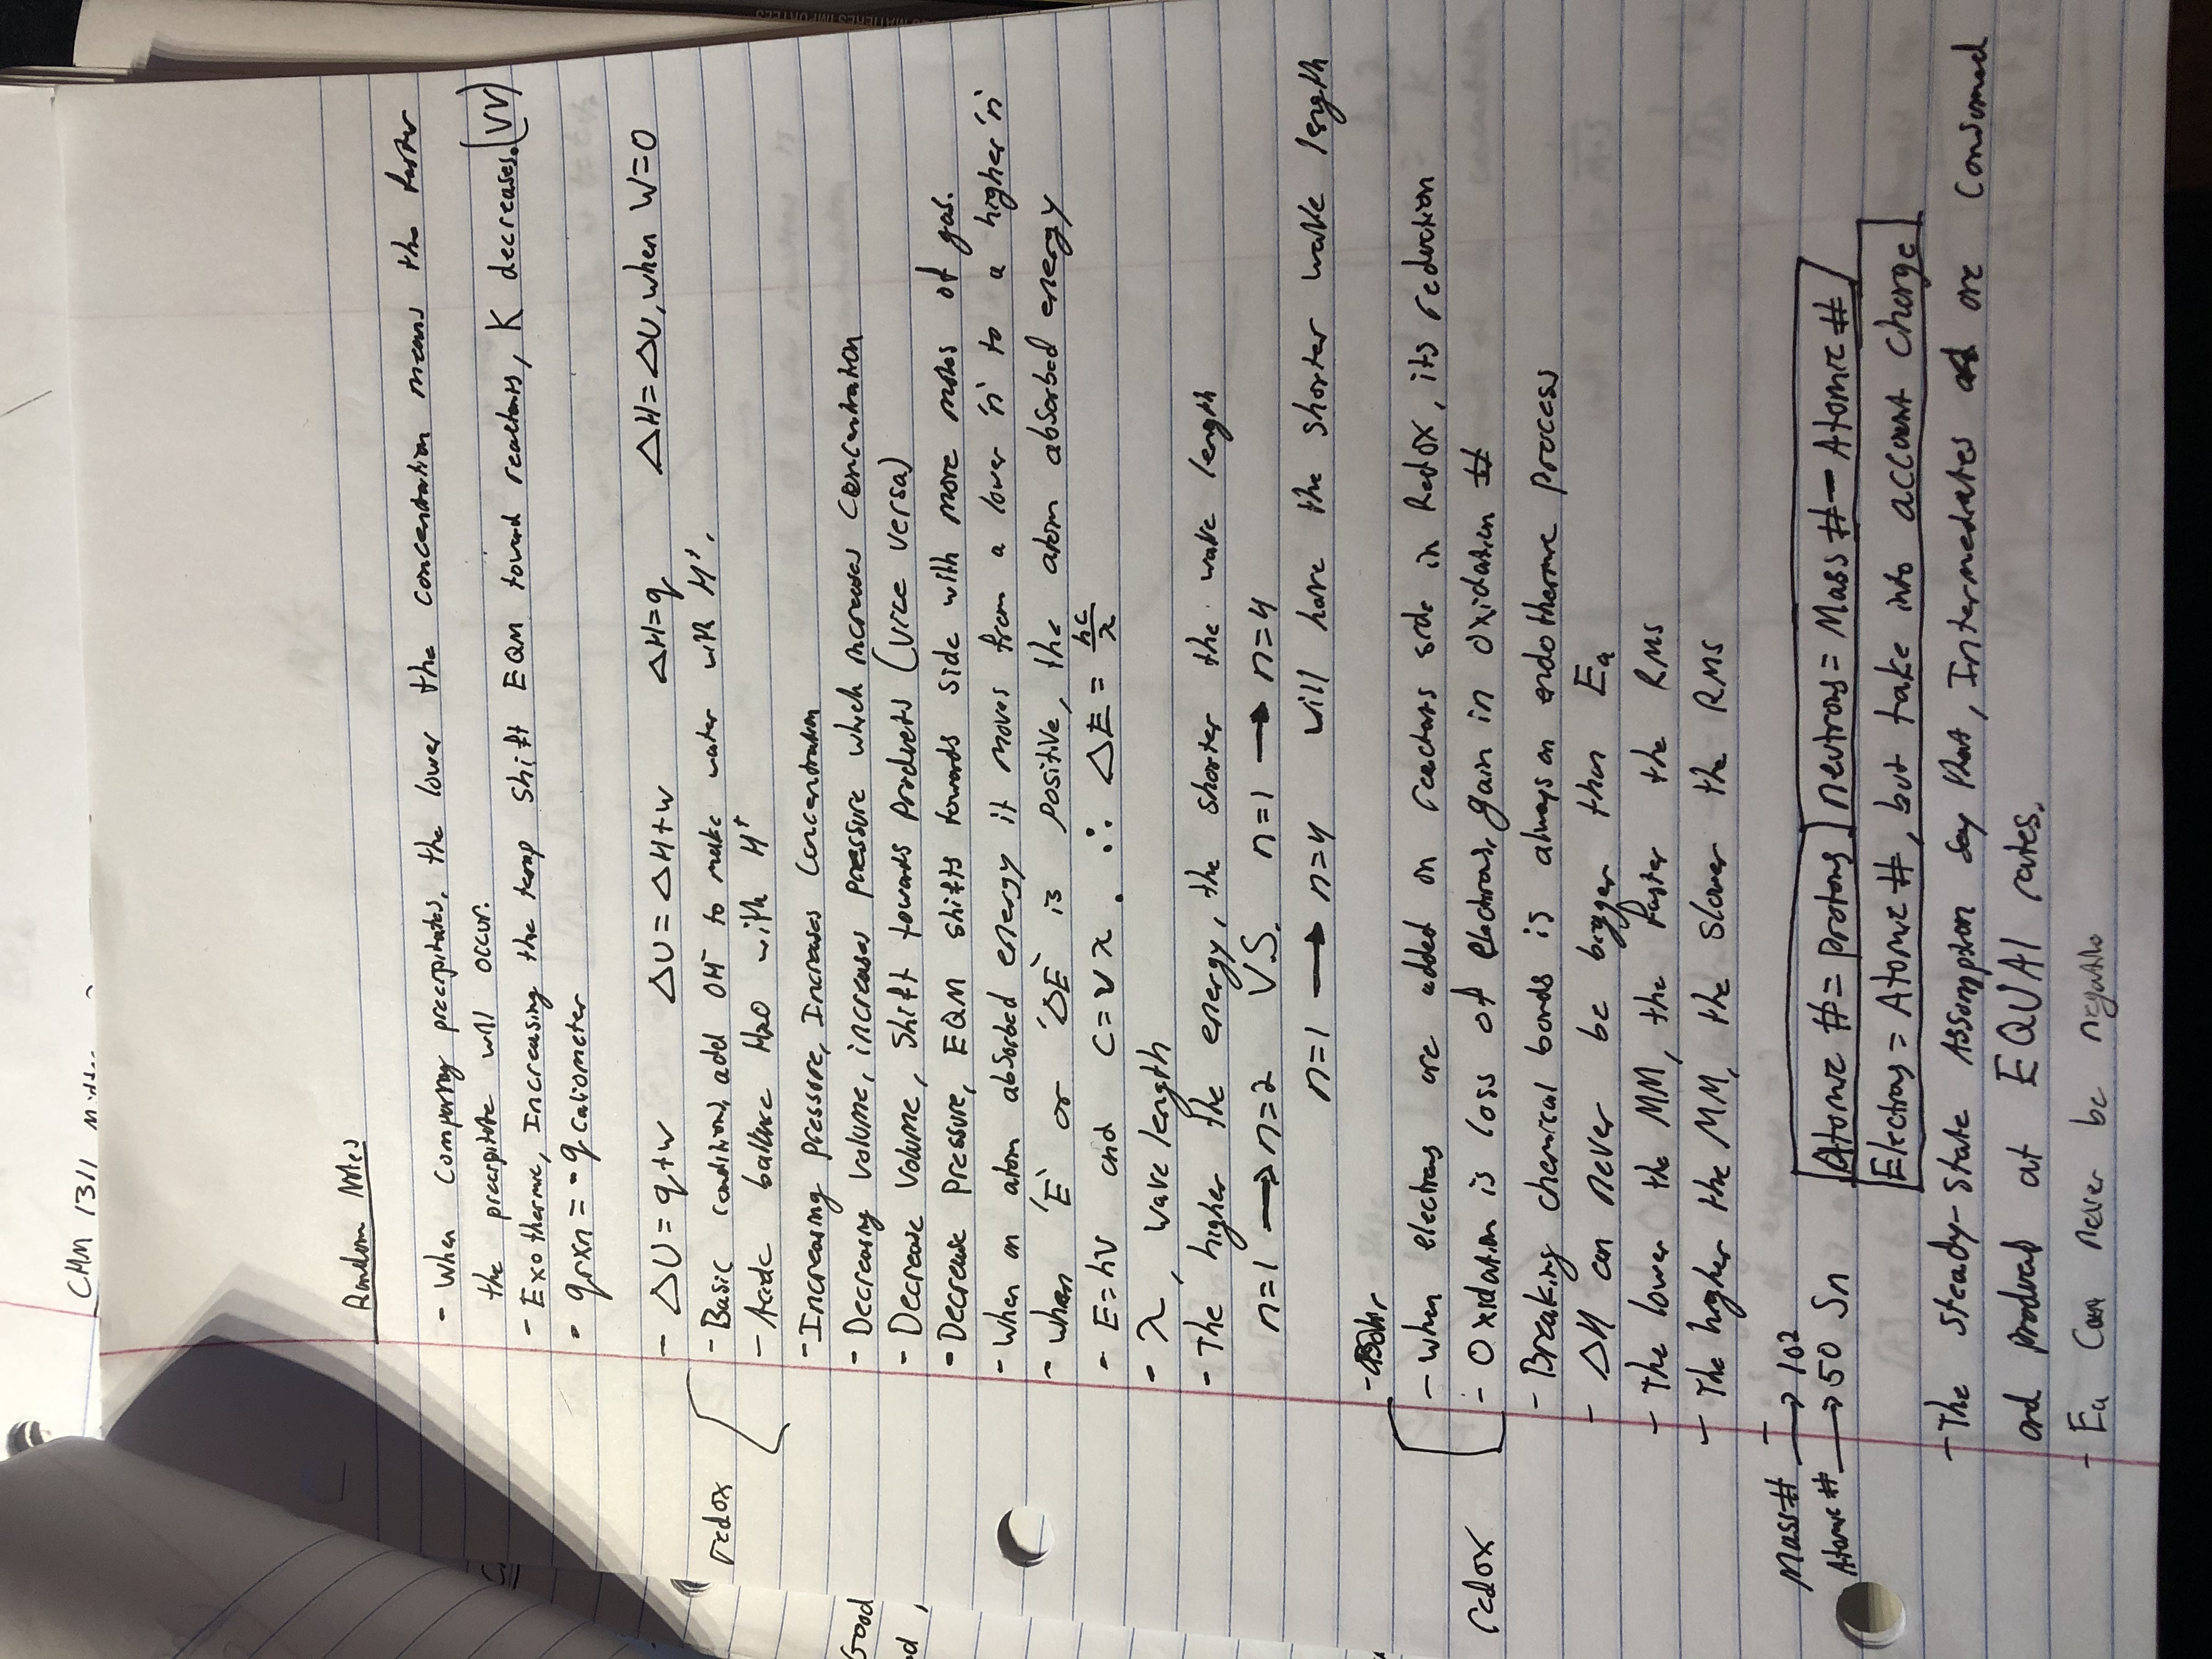 MATIERES IMPORTEES
CHM 1311
Random Notes
- When comparing precipitates, the lower the concentration means the faster
the precipitate will occur.
- Exothermic, Increasing the temp shift EQM toward reactants, K decreases. (VV)
- qrxn = -q caliometer
- ΔU = q+w ΔU = ΔH+w ΔH=q ΔH=ΔU, when W=0
redox
- Basic conditions, add OH⁻ to make water with H⁺.
- Acidic balance H2O with H⁺
- Increasing pressure, Increases Concentration
- Decreasing volume, increases pressure which increases concentration
- Decrease volume, shift towards products (vice versa)
- Decrease Pressure, EQM shifts towards side with more moles of gas.
- When an atom absorbed energy it moves from a lower 'n' to a higher 'n'
- When 'E' or 'ΔE' is positive, the atom absorbed energy
- E=hν and c=νλ. ∴ ΔE = hc/λ
- λ, wave length
- The higher the energy, the shorter the wave length
n=1 → n=2 VS. n=1 → n=4
n=1 → n=4 will have the shorter wave length
- Bohr
redox
- When electrons are added on reactants side in Redox, its reduction
- Oxidation is loss of electrons, gain in oxidation #
- Breaking chemical bonds is always an endothermic process
- ΔH can never be bigger than Ea
- The lower the MM, the faster the RMS
- The higher the MM, the slower the RMS
Mass# → 102
Atomic# → 50 Sn
Atomic # = protons neutrons = Mass # - Atomic #
Electrons = Atomic #, but take into account charge
- The steady-state Assumption say that, Intermediates are consumed
and produced at EQUAl rates.
- Ea Can never be negative
Good